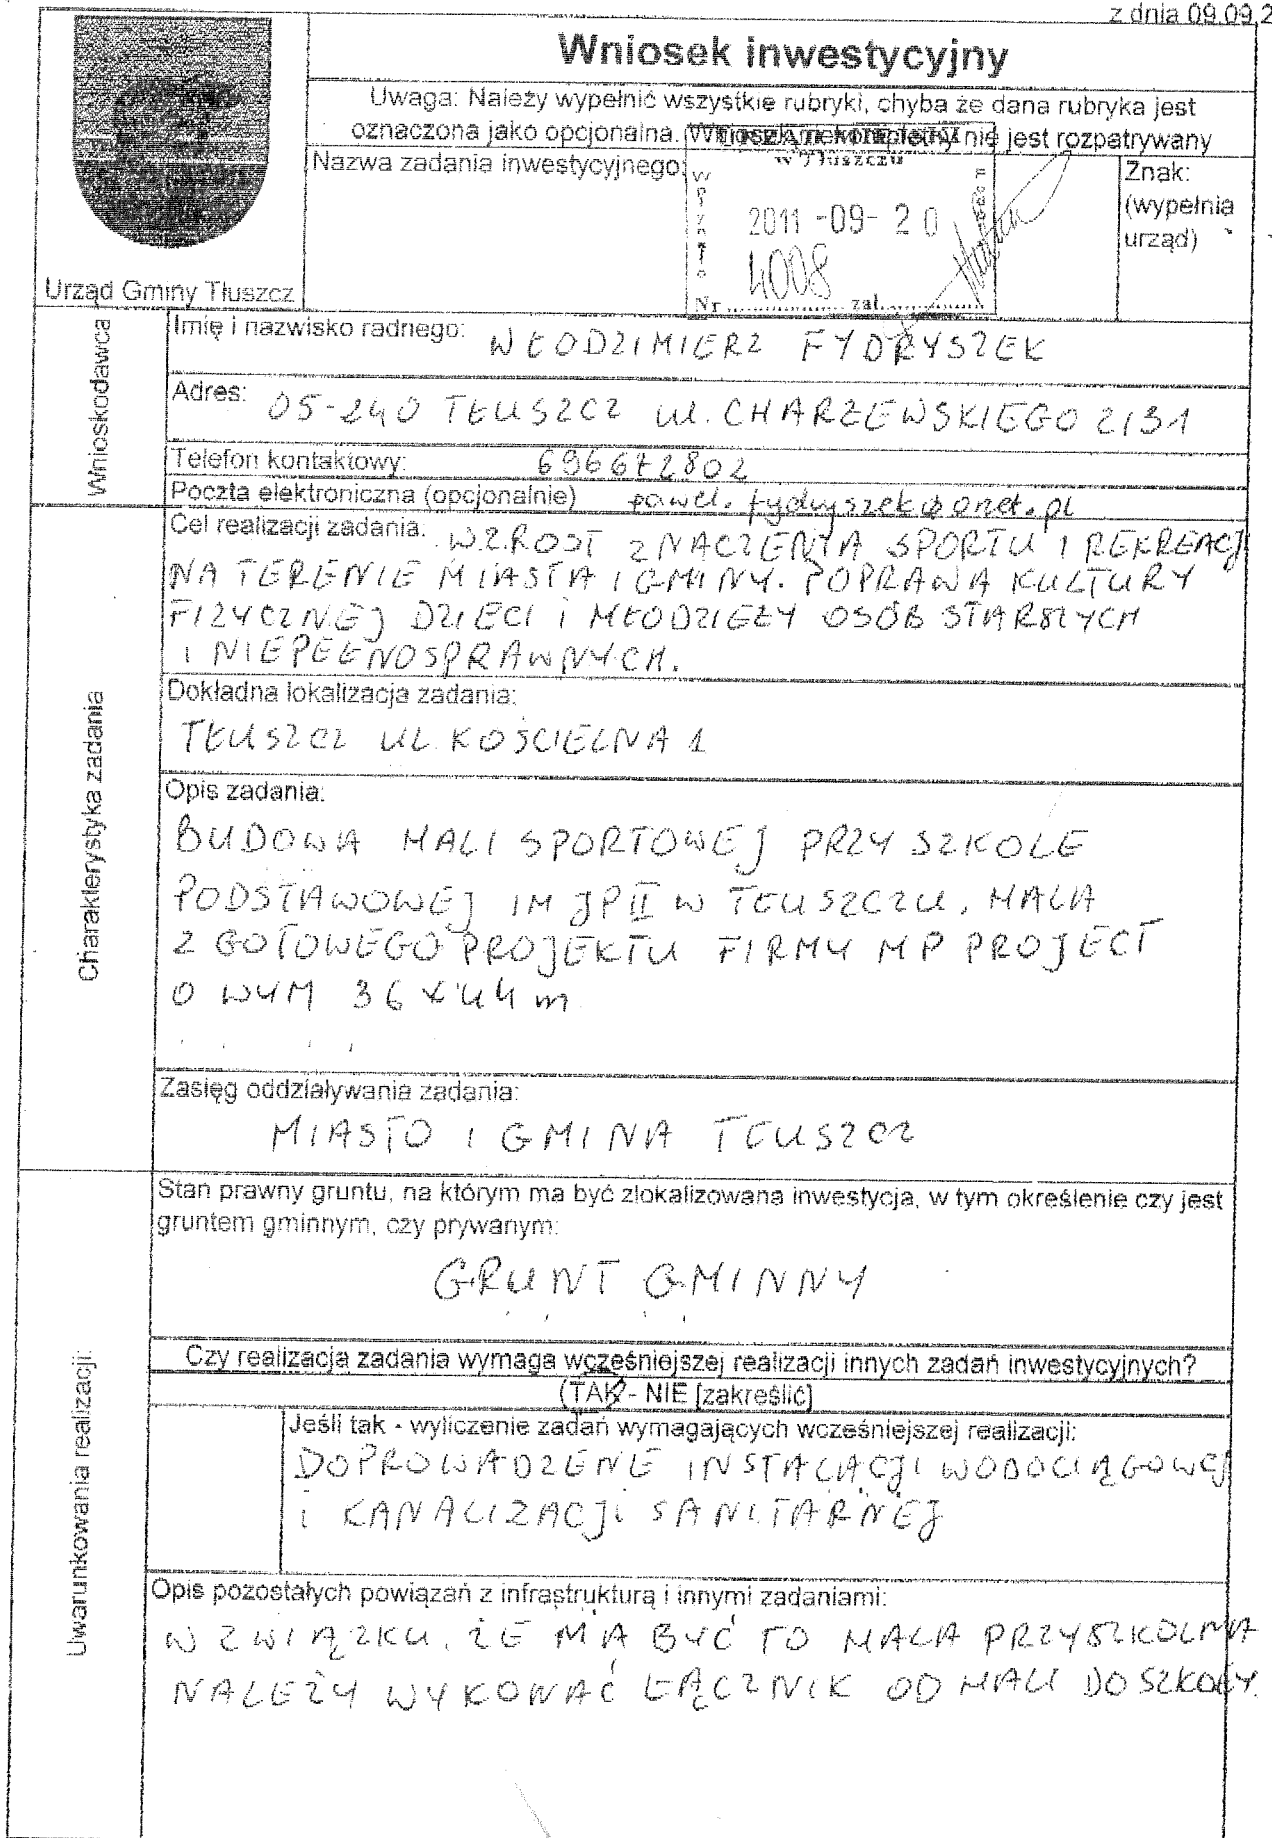 z dnia 09.09.2
Wniosek inwestycyjny
Uwaga: Należy wypełnić wszystkie rubryki, chyba że dana rubryka jest
oznaczona jako opcjonalna. Wniosek niekompletny nie jest rozpatrywany
Nazwa zadania inwestycyjnego:
w Tłuszczu
Wpłynęło
2011 -09- 20
4008
Nr zał.
Znak:
(wypełnia
urząd)
Urząd Gminy Tłuszcz
Wnioskodawca
Imię i nazwisko radnego: WŁODZIMIERZ FYDRYSZEK
Adres: 05-240 TŁUSZCZ UL. CHARZEWSKIEGO 2/31
Telefon kontaktowy: 696672802
Poczta elektroniczna (opcjonalnie) pawel.fydryszek@onet.pl
Charakterystyka zadania
Cel realizacji zadania: WZROST ZNACZENIA SPORTU I REKREACJ
NA TERENIE MIASTA I GMINY. POPRAWA KULTURY
FIZYCZNEJ DZIECI I MŁODZIEŻY OSÓB STARSZYCH
I NIEPEŁNOSPRAWNYCH.
Dokładna lokalizacja zadania:
TŁUSZCZ UL. KOŚCIELNA 1
Opis zadania:
BUDOWA HALI SPORTOWEJ PRZY SZKOLE
PODSTAWOWEJ IM JPII W TŁUSZCZU, HALA
Z GOTOWEGO PROJEKTU FIRMY MP PROJECT
O WYM 36 x 44 m
Zasięg oddziaływania zadania:
MIASTO I GMINA TŁUSZCZ
Uwarunkowania realizacji:
Stan prawny gruntu, na którym ma być zlokalizowana inwestycja, w tym określenie czy jest
gruntem gminnym, czy prywanym:
GRUNT GMINNY
Czy realizacja zadania wymaga wcześniejszej realizacji innych zadań inwestycyjnych?
TAK - NIE [zakreślić]
Jeśli tak - wyliczenie zadań wymagających wcześniejszej realizacji:
DOPROWADZENIE INSTALACJI WODOCIĄGOWEJ
I KANALIZACJI SANITARNEJ
Opis pozostałych powiązań z infrastrukturą i innymi zadaniami:
W ZWIĄZKU, ŻE MA BYĆ TO HALA PRZYSZKOLNA
NALEŻY WYKONAĆ ŁĄCZNIK OD HALI DO SZKOŁY.